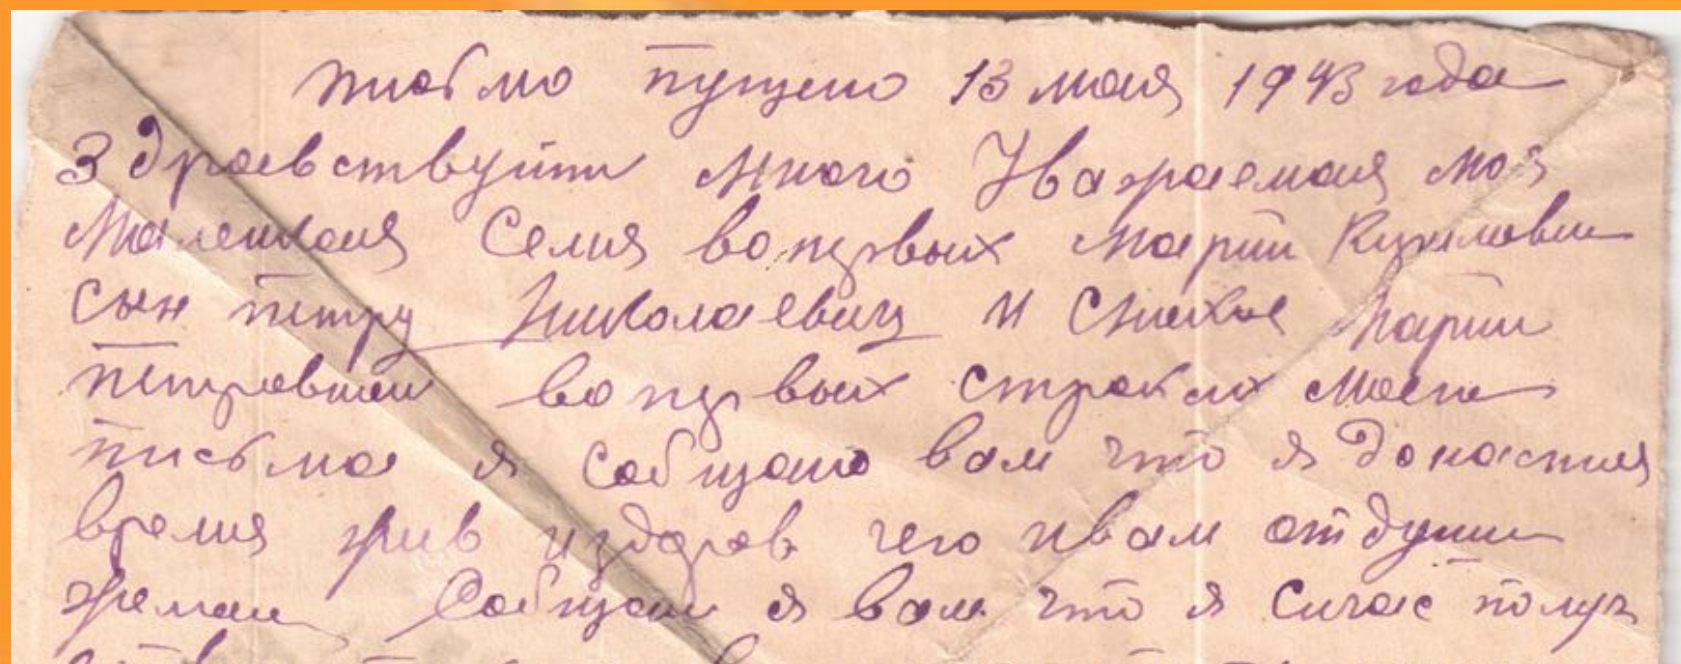 письмо пущено 13 мая 1943 года
Здравствуйти много Уважаемая моя
Маленкая Семия вопервых Марии Кузмовни
Сын петру Николаевичу и Снохе Марии
петровни вопервых строках моего
писма я Сообщаю вам что я донастоия
время жив издоров чего ивам отдуши
желаю Собщаю я вам что я Сичас получ